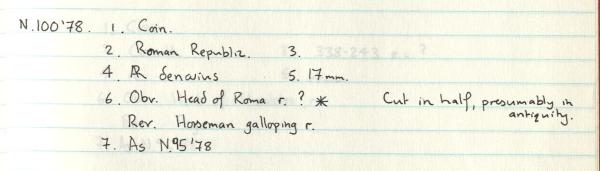 N.100'78. 1. Coin.
2. Roman Republic. 3.
4. AR denarius 5. 17mm.
6. Obv. Head of Roma r. ? * Cut in half, presumably in antiquity.
Rev. Horseman galloping r.
7. As N.95'78